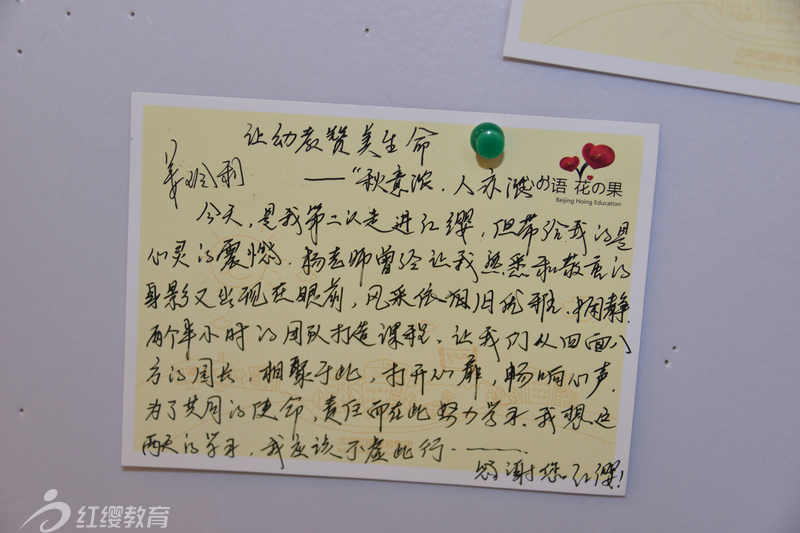 让幼教赞美生命
——“秋意浓，人亦浓
语 花の果
Beijing Hoing Education
今天，是我第二次走进红缨，但带给我的是
心灵的震憾。杨老师曾经让我熟悉和敬重的
身影又出现在眼前，风采依旧 娴静
两个半小时的团队打造课程，让我们从四面八
方的园长，相聚于此，打开心扉，畅响心声
为了共同的使命，责任而在此努力学习。我想这
两天的学习，我应该不虚此行……
感谢您红缨！
红缨教育